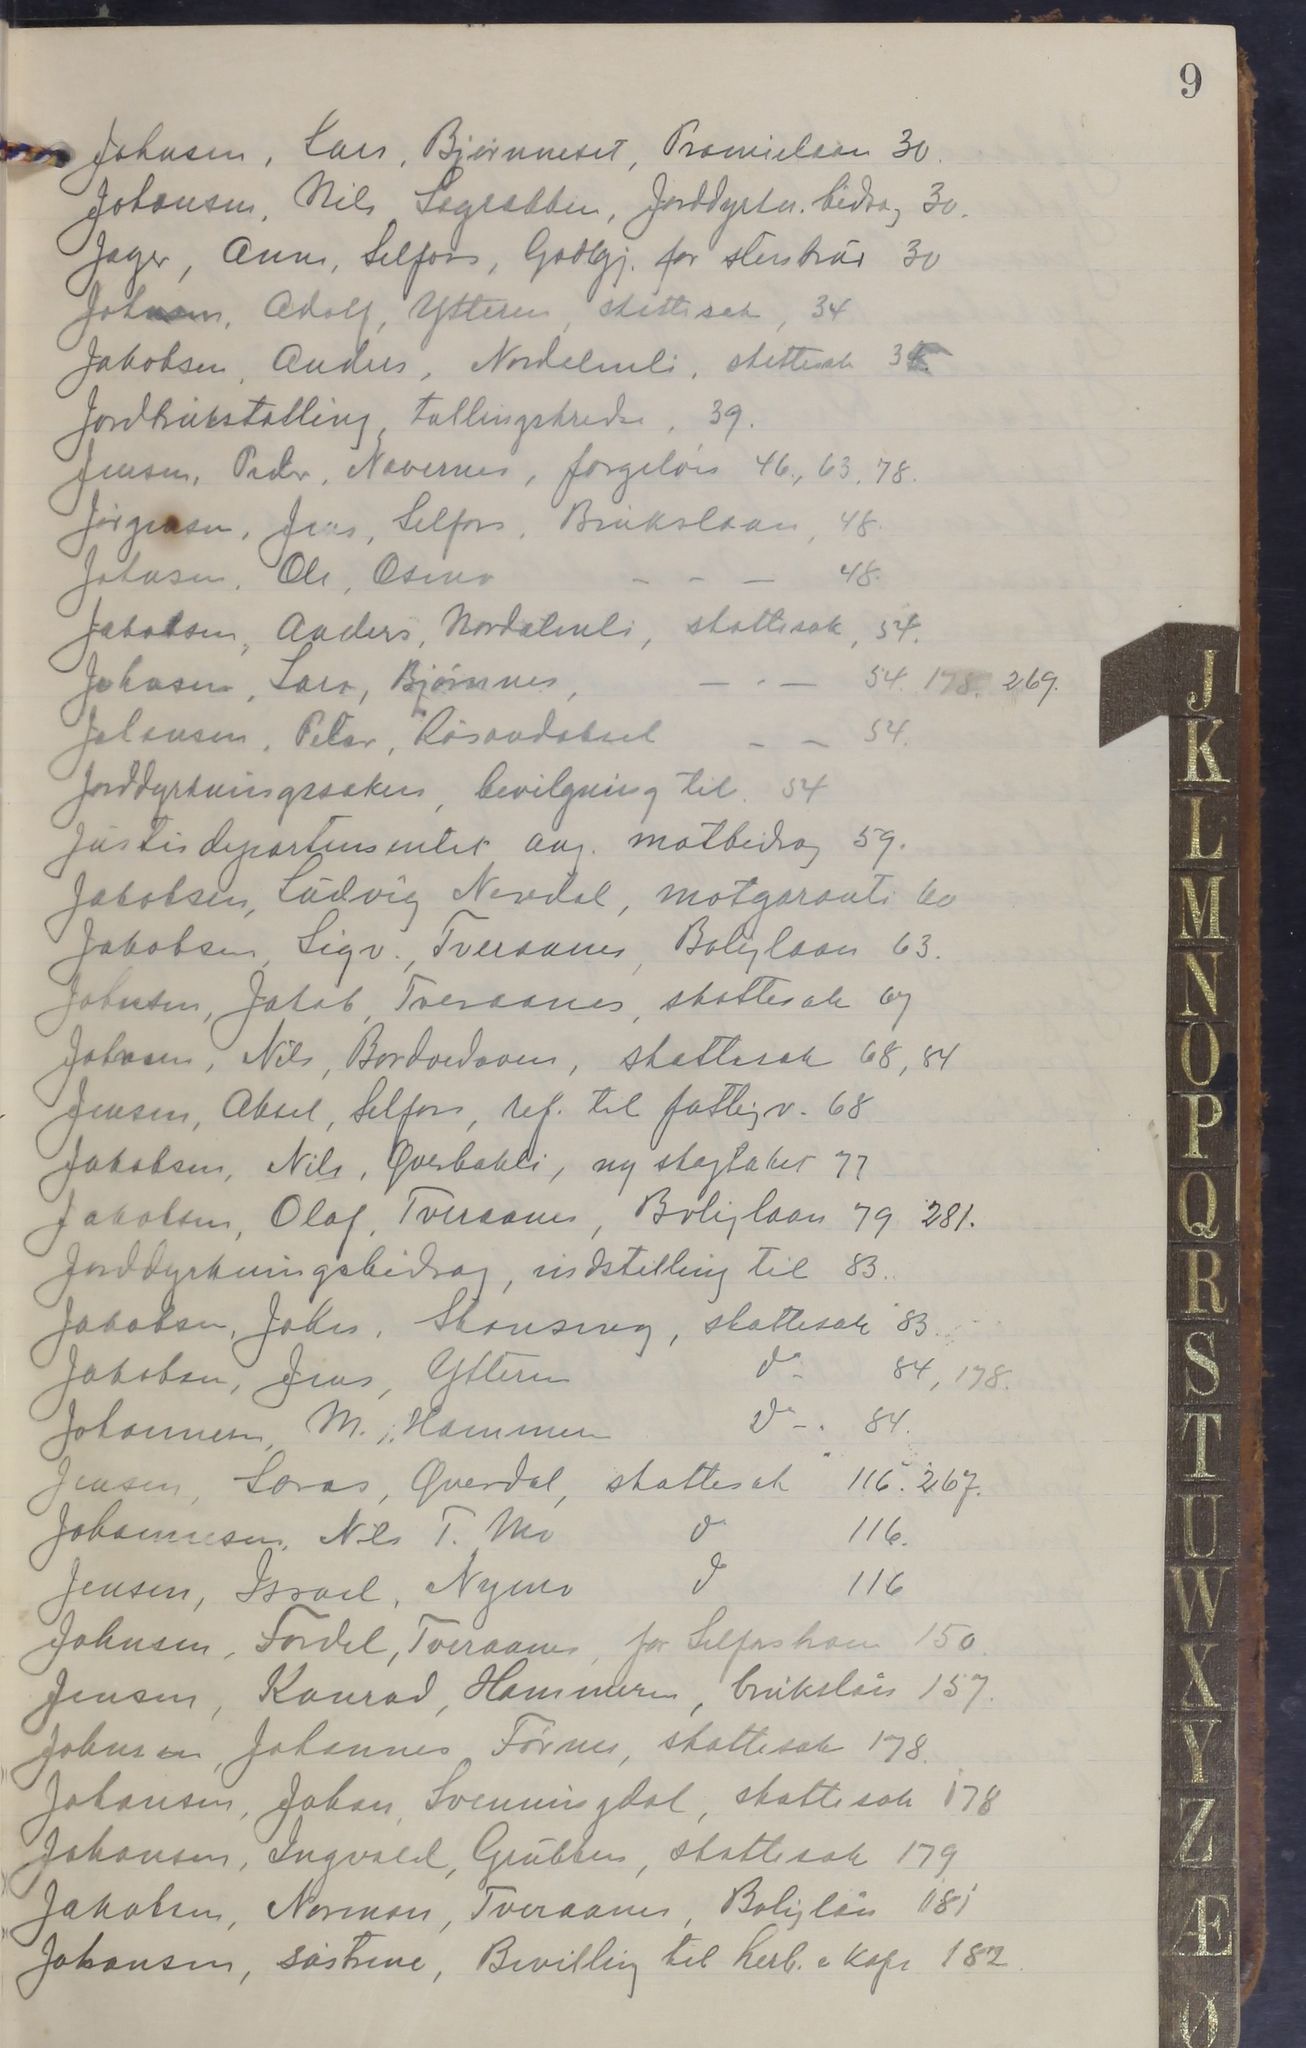 9
Johnsen, Lars, Bjørnneset, Premielaan 30.
Johansen, Nils Sagrabben, Jorddyrkn. bidrag 30.
Jager, Anna, Selfors, Godtgj. for 30
Johnsen, Adolf, Ytteren, skattesak, 34
Jakobsen, Anders, Nordalenli, skattesak 34
Jordbrukstelling, tellingskredse, 39.
Jensen, Peder, Navernes, 46, 63, 78.
Jørgensen, Jens, Selfors, Brukslaan, 48.
Johnsen, Ole, Osmo - - - 48.
Jakobsen, Anders, Nordalenli, skattesak, 54.
Johnsen, Lars, Bjørnnes, - " - 54. 178. 269.
Johansen, Peter, - - 54.
Jorddyrkningssaken, bevilgning til 54
Justisdepartementet ang. motbidrag 59.
Jakobsen, Ludvig Nerdal, motgaranti 60
Jakobsen, Sigv., Tveraanes, Boliglaan 63.
Johnsen, Jakob, Tveraanes, skattesak 67
Johnsen, Nils, Bordvedaven, skattesak 68, 84
Jensen, Aksel, Selfors, ref. til fattigv. 68
Jakobsen, Nils, Øverbakli, ny skogtakst 77
Jakobsen, Olaf, Tveraanes, Boliglaan 79 281.
Jorddyrkningsbidrag, indstilling til 83.
Jakobsen, Skonseng, skattesak 83
Jakobsen, Jens, Ytteren d- 84, 178.
Johannesen, M., Hammeren d-. 84.
Jensen, Øverdal, skattesak 116. 267.
Johannesen, Nils T. Mo d 116.
Jensen, Israel, Nymo d 116
Johnsen, Fordel, Tveraanes, for 150.
Jensen, Konrad, Hammeren, brukslån 157.
Johnsen, Johannes Førnes, skattesak 178.
Johansen, Johan, Svenningdal, skattesak 178
Johansen, Ingvald, Gruben, skattesak 179
Jakobsen, Norman, Tveraanes, Boliglån 181
Johansen, søstrene, Bevilling til herb. o kafe 182
J
K
L
M
N
O
P
Q
R
S
T
U
W
X
Y
Z
Æ
Ø